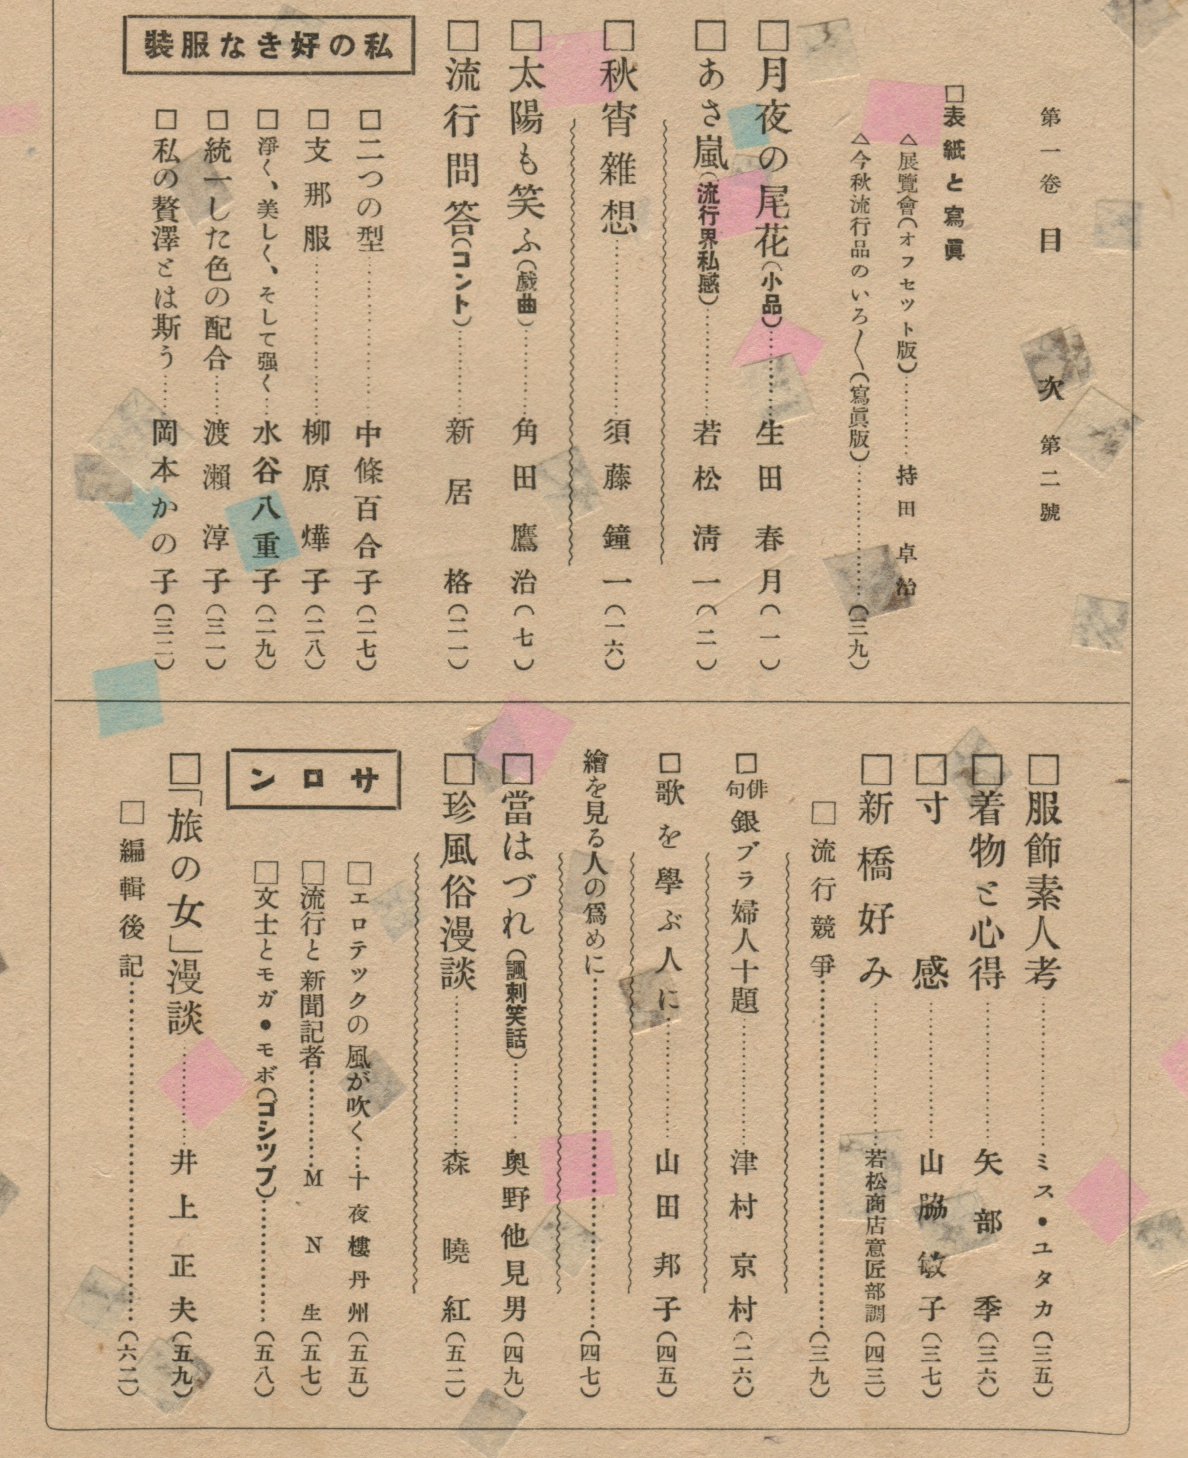 第一卷 目次 第二號
□表紙と寫眞
△展覽會(オフセツト版)…………持田卓治
△今秋流行品のいろ〱(寫眞版)…………(三九)
□月夜の尾花(小品)…………生田春月(一)
□あさ嵐(流行界私感)…………若松淸一(二)
□秋宵雜想…………須藤鐘一(一六)
□太陽も笑ふ(戲曲)…………角田鷹治(七)
□流行問答(コント)…………新居格(二一)
私の好きな服裝
□二つの型…………中條百合子(二七)
□支那服…………柳原燁子(二八)
□淨く、美しく、そして强く…水谷八重子(二九)
□統一した色の配合……渡瀨淳子(三一)
□私の贅澤とは斯う……岡本かの子(三二)
□服飾素人考…………ミス・ユタカ(三五)
□着物と心得…………矢部季(三六)
□寸感…………山脇敏子(三七)
□新橋好み…………若松商店意匠部調(四三)
□流行競爭…………(三九)
□俳句銀ブラ婦人十題…………津村京村(二六)
□歌を學ぶ人に…………山田邦子(四五)
繪を見る人の爲めに…………(四七)
□當はづれ(諷刺笑話)……奧野他見男(四九)
□珍風俗漫談…………森曉紅(五二)
サロン
□エロテツクの風が吹く…十夜樓丹州(五五)
□流行と新聞記者…………MN生(五七)
□文士とモガ・モボ(ゴシツプ)…………(五八)
□「旅の女」漫談…………井上正夫(五九)
□編輯後記…………(六二)